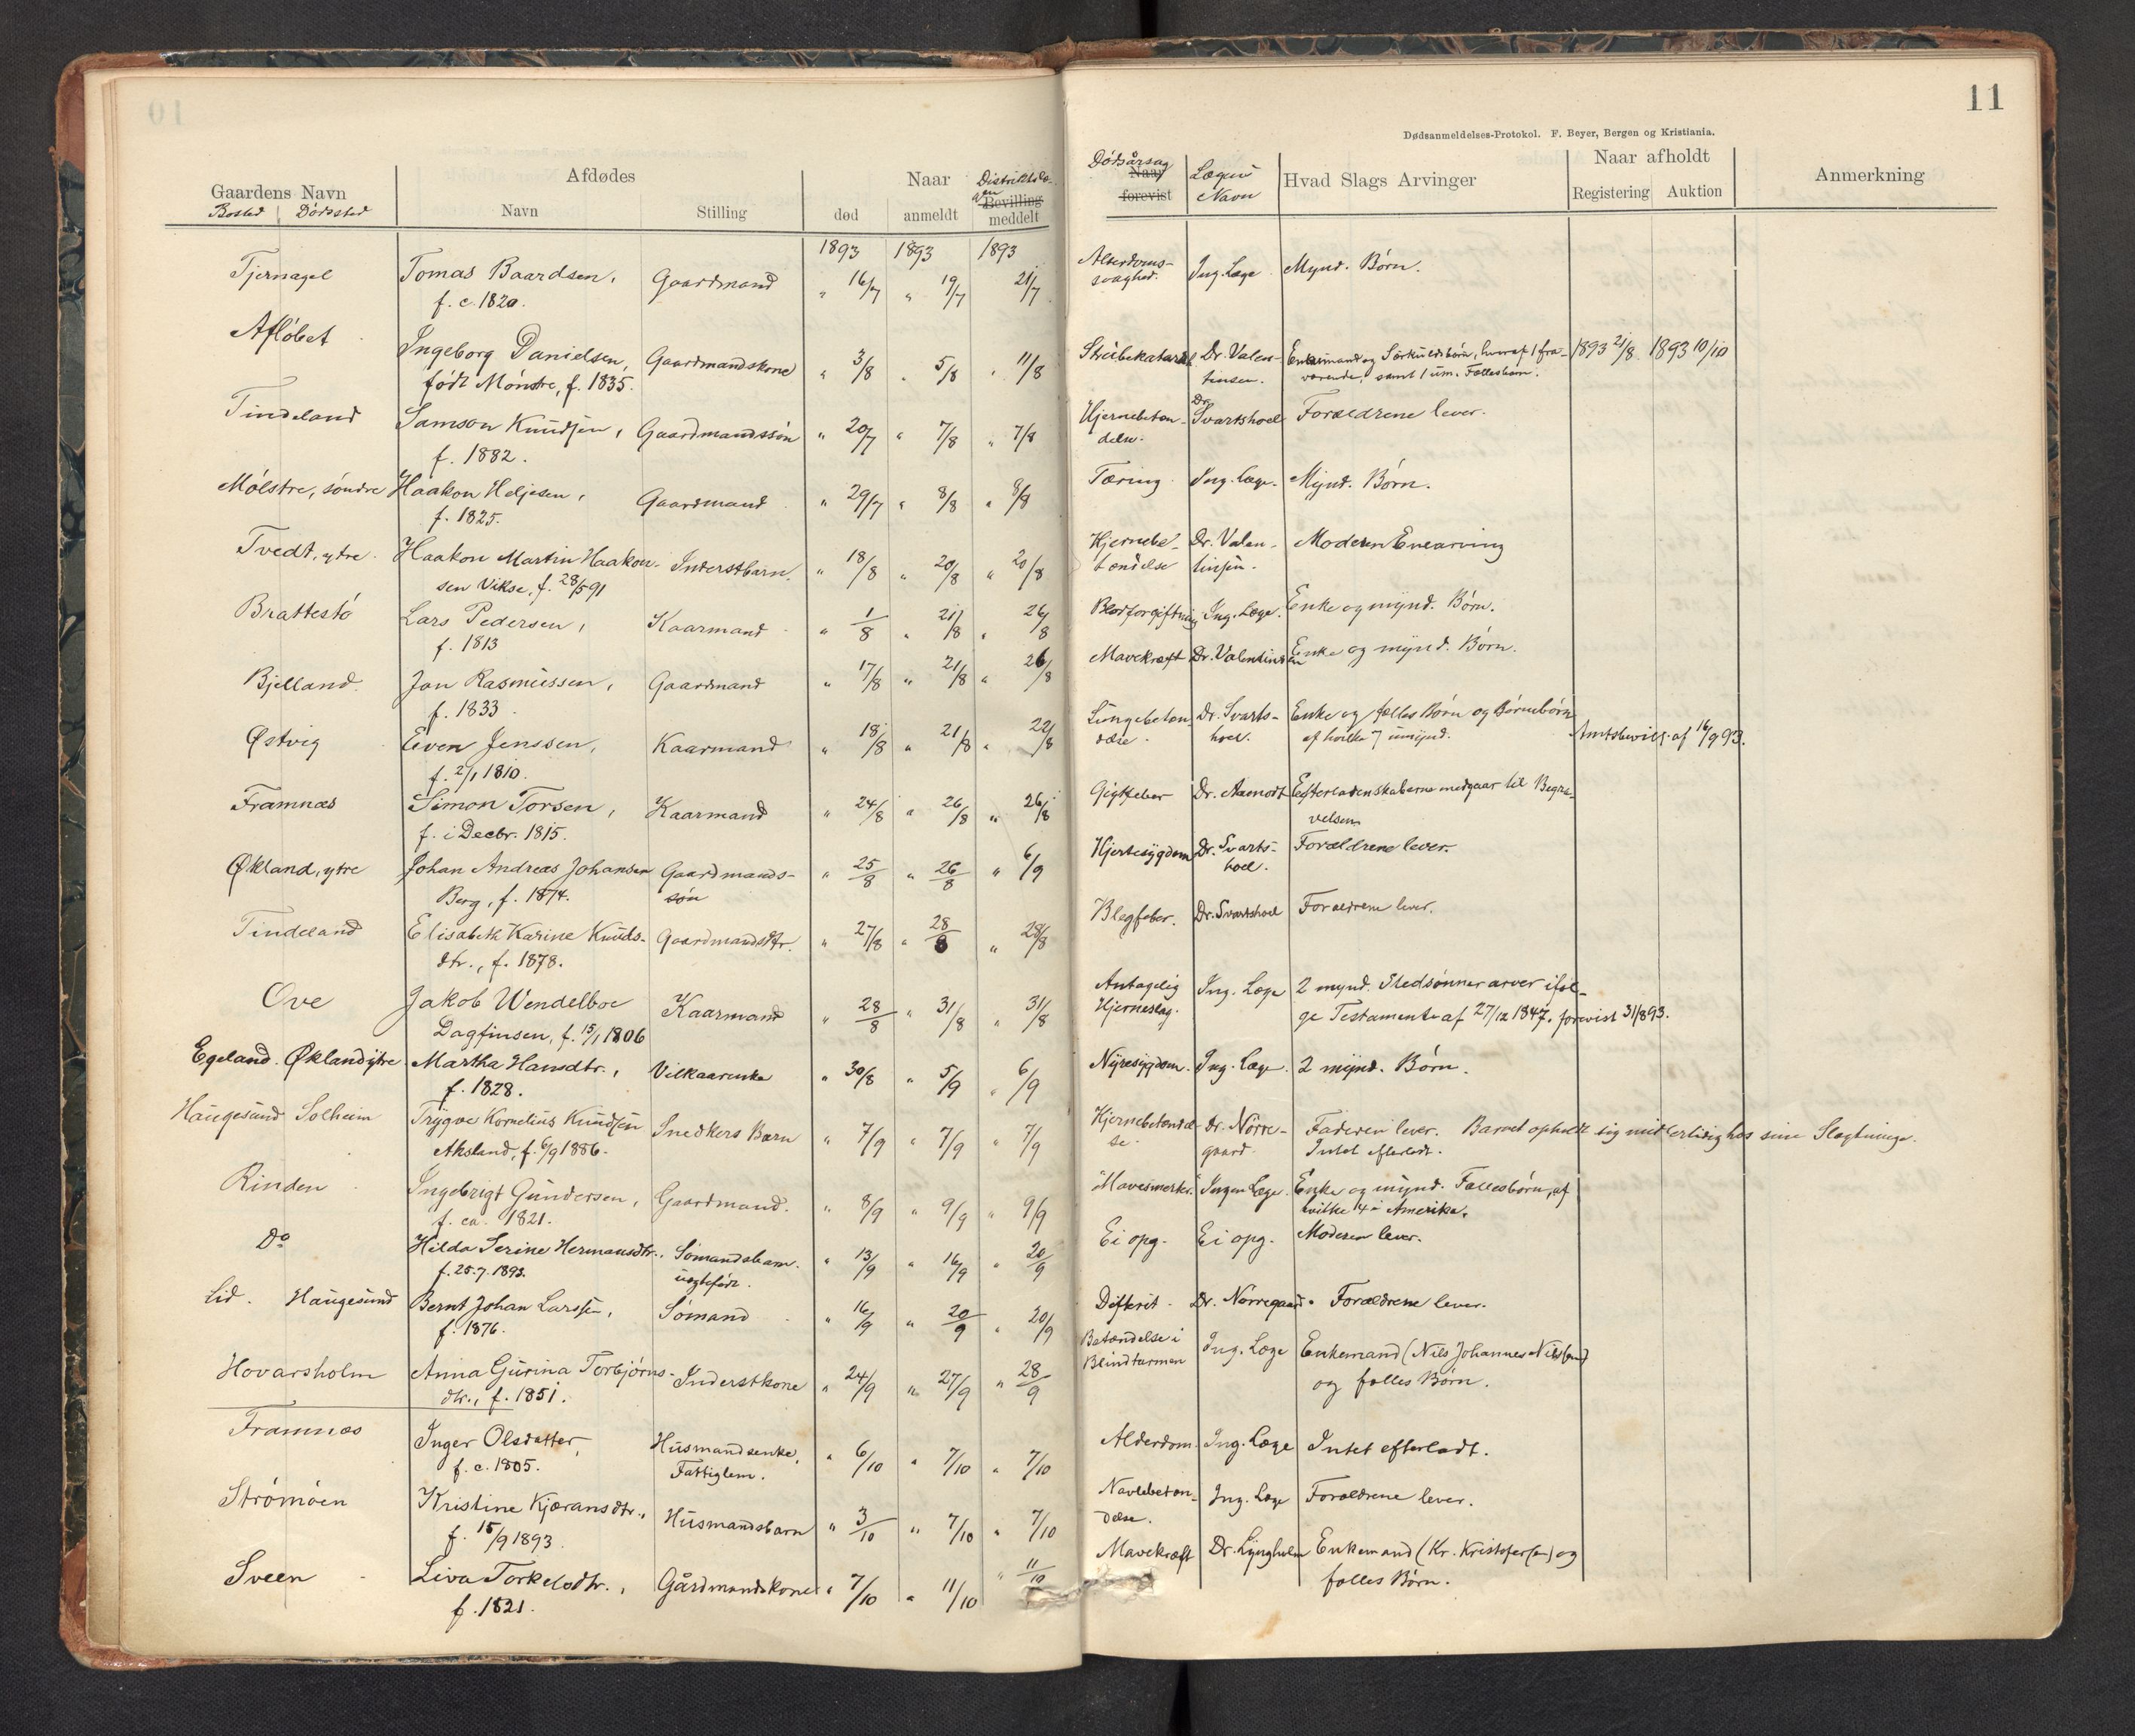 11
Dødsanmeldelses-Protokol. F. Beyer, Bergen og Kristiania.
Gaardens Navn
Bosted Dødssted
Afdødes
Navn
Stilling
Naar
død
anmeldt
Bevilling
meddelt
Dødsårsag
Naar
forevist
Lægens
Navn
Hvad Slags Arvinger
Naar afholdt
Registering
Auktion
Anmerkning
1893 1893 1893
Tjernagel Tomas Baardsen, Gaardmand " 16/7 " 19/7 21/7 Alderdoms- Ing. Læge Mynd. Børn.
f. c. 1820. svaghed.
Afløbet Ingeborg Danielsen, Gaardmandskone " 3/8 " 5/8 " 11/8 Strubekatarrh Dr. Valen- Enkemand og Særkuldsbørn, hvoraf 1 fra- 1893 21/8 1893 10/10
født Mønstre, f. 1835. tinsen. værende, samt 1 um. Fællesbarn.
Tindeland Samson Knudsen, Gaardmandssøn " 20/7 " 7/8 " 7/8 Hjernebeten- Dr. Svartshoel Forældrene lever.
f. 1882. delse.
Mølstre, søndre Haakon Heljesen, Gaardmand " 29/7 " 8/8 " 8/8 Tæring Ing. Læge. Mynd. Børn.
f. 1825.
Tvedt, ytre. Haakon Martin Haakon- Inderstbarn. " 18/8 " 20/8 " 20/8 Hjernebe- Dr. Valen- Moderen Enearving
sen Vikse, f. 28/5 91 tændelse tinsen.
Brattestø Lars Pedersen, Kaarmand " 1/8 " 21/8 " 26/8 Blodforgiftning Ing. Læge. Enke og mynd. Børn.
f. 1813
Bjelland. Jon Rasmussen, Gaardmand " 17/8 " 21/8 " 26/8 Mavekræft Dr. Valentinsen Enke og mynd. Børn.
f. 1833.
Østvig Even Jenssen, Kaarmand " 18/8 " 21/8 " 22/8 Lungebeten- Dr. Svarts- Enke og fælles Børn og Børnebørn
f. 2/1 1810. delse. hoel. af hvilke 7 umynd. Amtsbevilg. af 16/9 93.
Framnæs Simon Torsen, Kaarmand " 24/8 " 26/8 " 26/8 Gigtfeber Dr. Aamodt Efterladenskaberne medgaar til Begra-
f. i Decbr. 1815. velsen
Økland, ytre Johan Andreas Johansen Gaardmands- " 25/8 " 26/8 " 6/9 Hjertesygdom Dr. Svarts- Forældrene lever.
Berg, f. 1874. søn hoel.
Tindeland Elisabeth Karine Knuds- Gaardmandsdtr. " 27/8 " 28/8 " 28/8 Blegfeber. Dr. Svartshoel Forældrene lever.
dtr., f. 1878.
Ove Jakob Wendelboe Kaarmand " 28/8 " 31/8 " 31/8 Antagelig Ing. Læge 2 mynd. Stedsønner arver iføl-
Dagfinsen, f. 15/1 1806 Hjerneslag. ge Testamente af 27/12 1847. forevist 31/8 93.
Egeland. Økland ytre Martha Hansdtr., Vilkaarenke " 30/8 " 5/9 " 6/9 Nyresygdom. Ing. Læge. 2 mynd. Børn.
f. 1828.
Haugesund Solheim Trygve Kornelius Knudsen Snedkers Barn " 7/9 " 7/9 " 7/9 Hjernebetændel- Dr. Nørre- Faderen lever. Barnet opholdt sig midlertidig hos sine Slægtninge.
Aksland, f. 6/9 1886. se gaard Intet efterladt.
Rinden Ingebrigt Gundersen, Gaardmand. " 8/9 " 9/9 " 9/9 Mavesmerter. Ingen Læge. Enke og mynd. Fællesbørn, af
f. ca. 1821. hvilke 4 i Amerika.
Do Hilda Serine Hermansdtr., Sømandsbarn. " 13/9 " 16/9 " 20/9 Ei opg. Ei opg. Moderen lever.
f. 25.7.1893. uægtefødt.
Lid. Haugesund Bernt Johan Larssen, Sømand " 16/9 " 20/9 " 20/9 Difterit. Dr. Nørregaard. Forældrene lever.
f. 1876.
Hovarsholm Anna Gurina Torbjørns- Inderstkone " 24/9 " 27/9 " 28/9 Betændelse i Ing. Læge Enkemand (Nils Johannes Nilssen)
dtr., f. 1851. Blindtarmen og fælles Børn.
Framnæs Inger Olsdatter, Husmandsenke, " 6/10 " 7/10 " 7/10 Alderdom. Ing. Læge Intet efterladt.
f. c. 1805. Fattiglem.
Strømøen Kristine Kjæransdtr., Husmandsbarn " 3/10 " 7/10 " 7/10 Navlebeten- Ing. Læge Forældrene lever.
f. 15/9 1893. delse.
Sveen Liva Torkelsdtr., Gårdmandskone " 7/10 " 11/10 " 11/10 Mavekræft Dr. Lyngholm Enkemand (Kr. Kristofersen) og
f. 1821. fælles Børn.